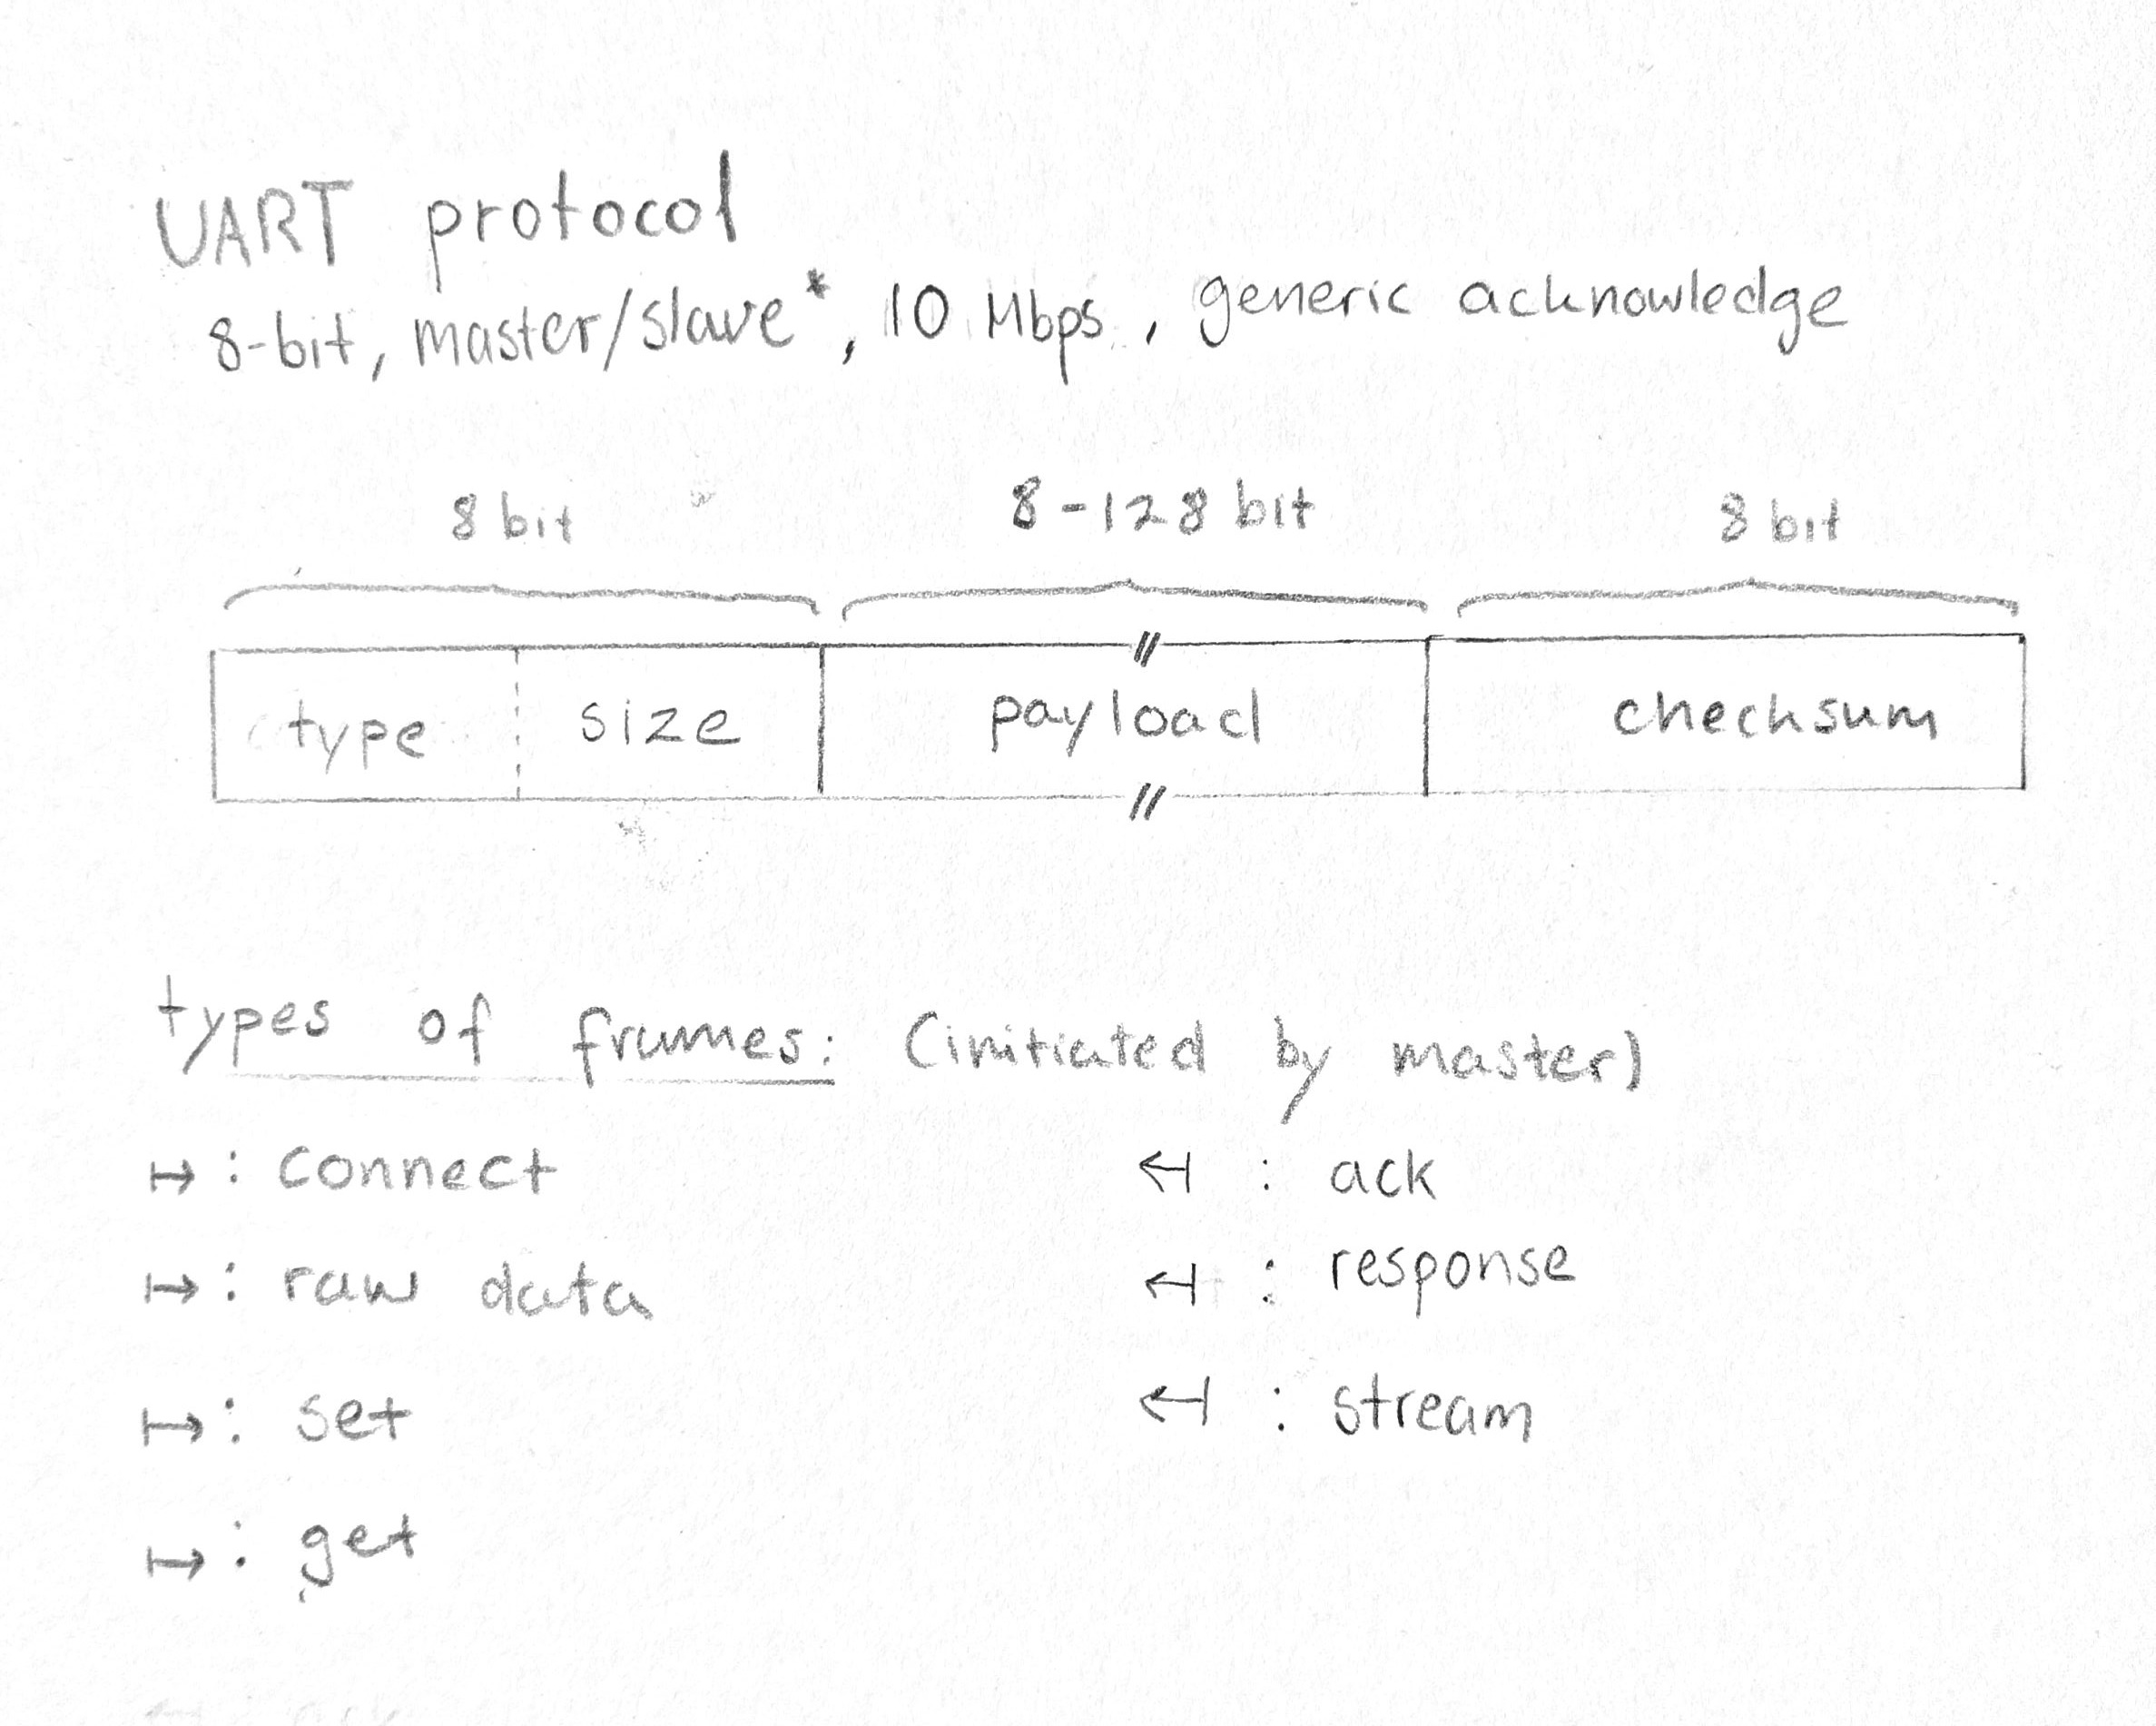 UART protocol
8-bit, master/slave*, 10 Mbps, generic acknowledge
8 bit 8-128 bit 8 bit
type size payload checksum
types of frames: (initiated by master)
↦ : connect ↤ : ack
↦ : raw data ↤ : response
↦ : set ↤ : stream
↦ : get